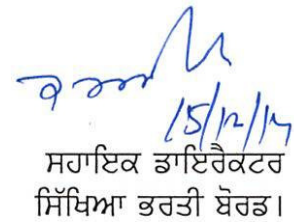 15/12/14
ਸਹਾਇਕ ਡਾਇਰੈਕਟਰ
ਸਿੱਖਿਆ ਭਰਤੀ ਬੋਰਡ।